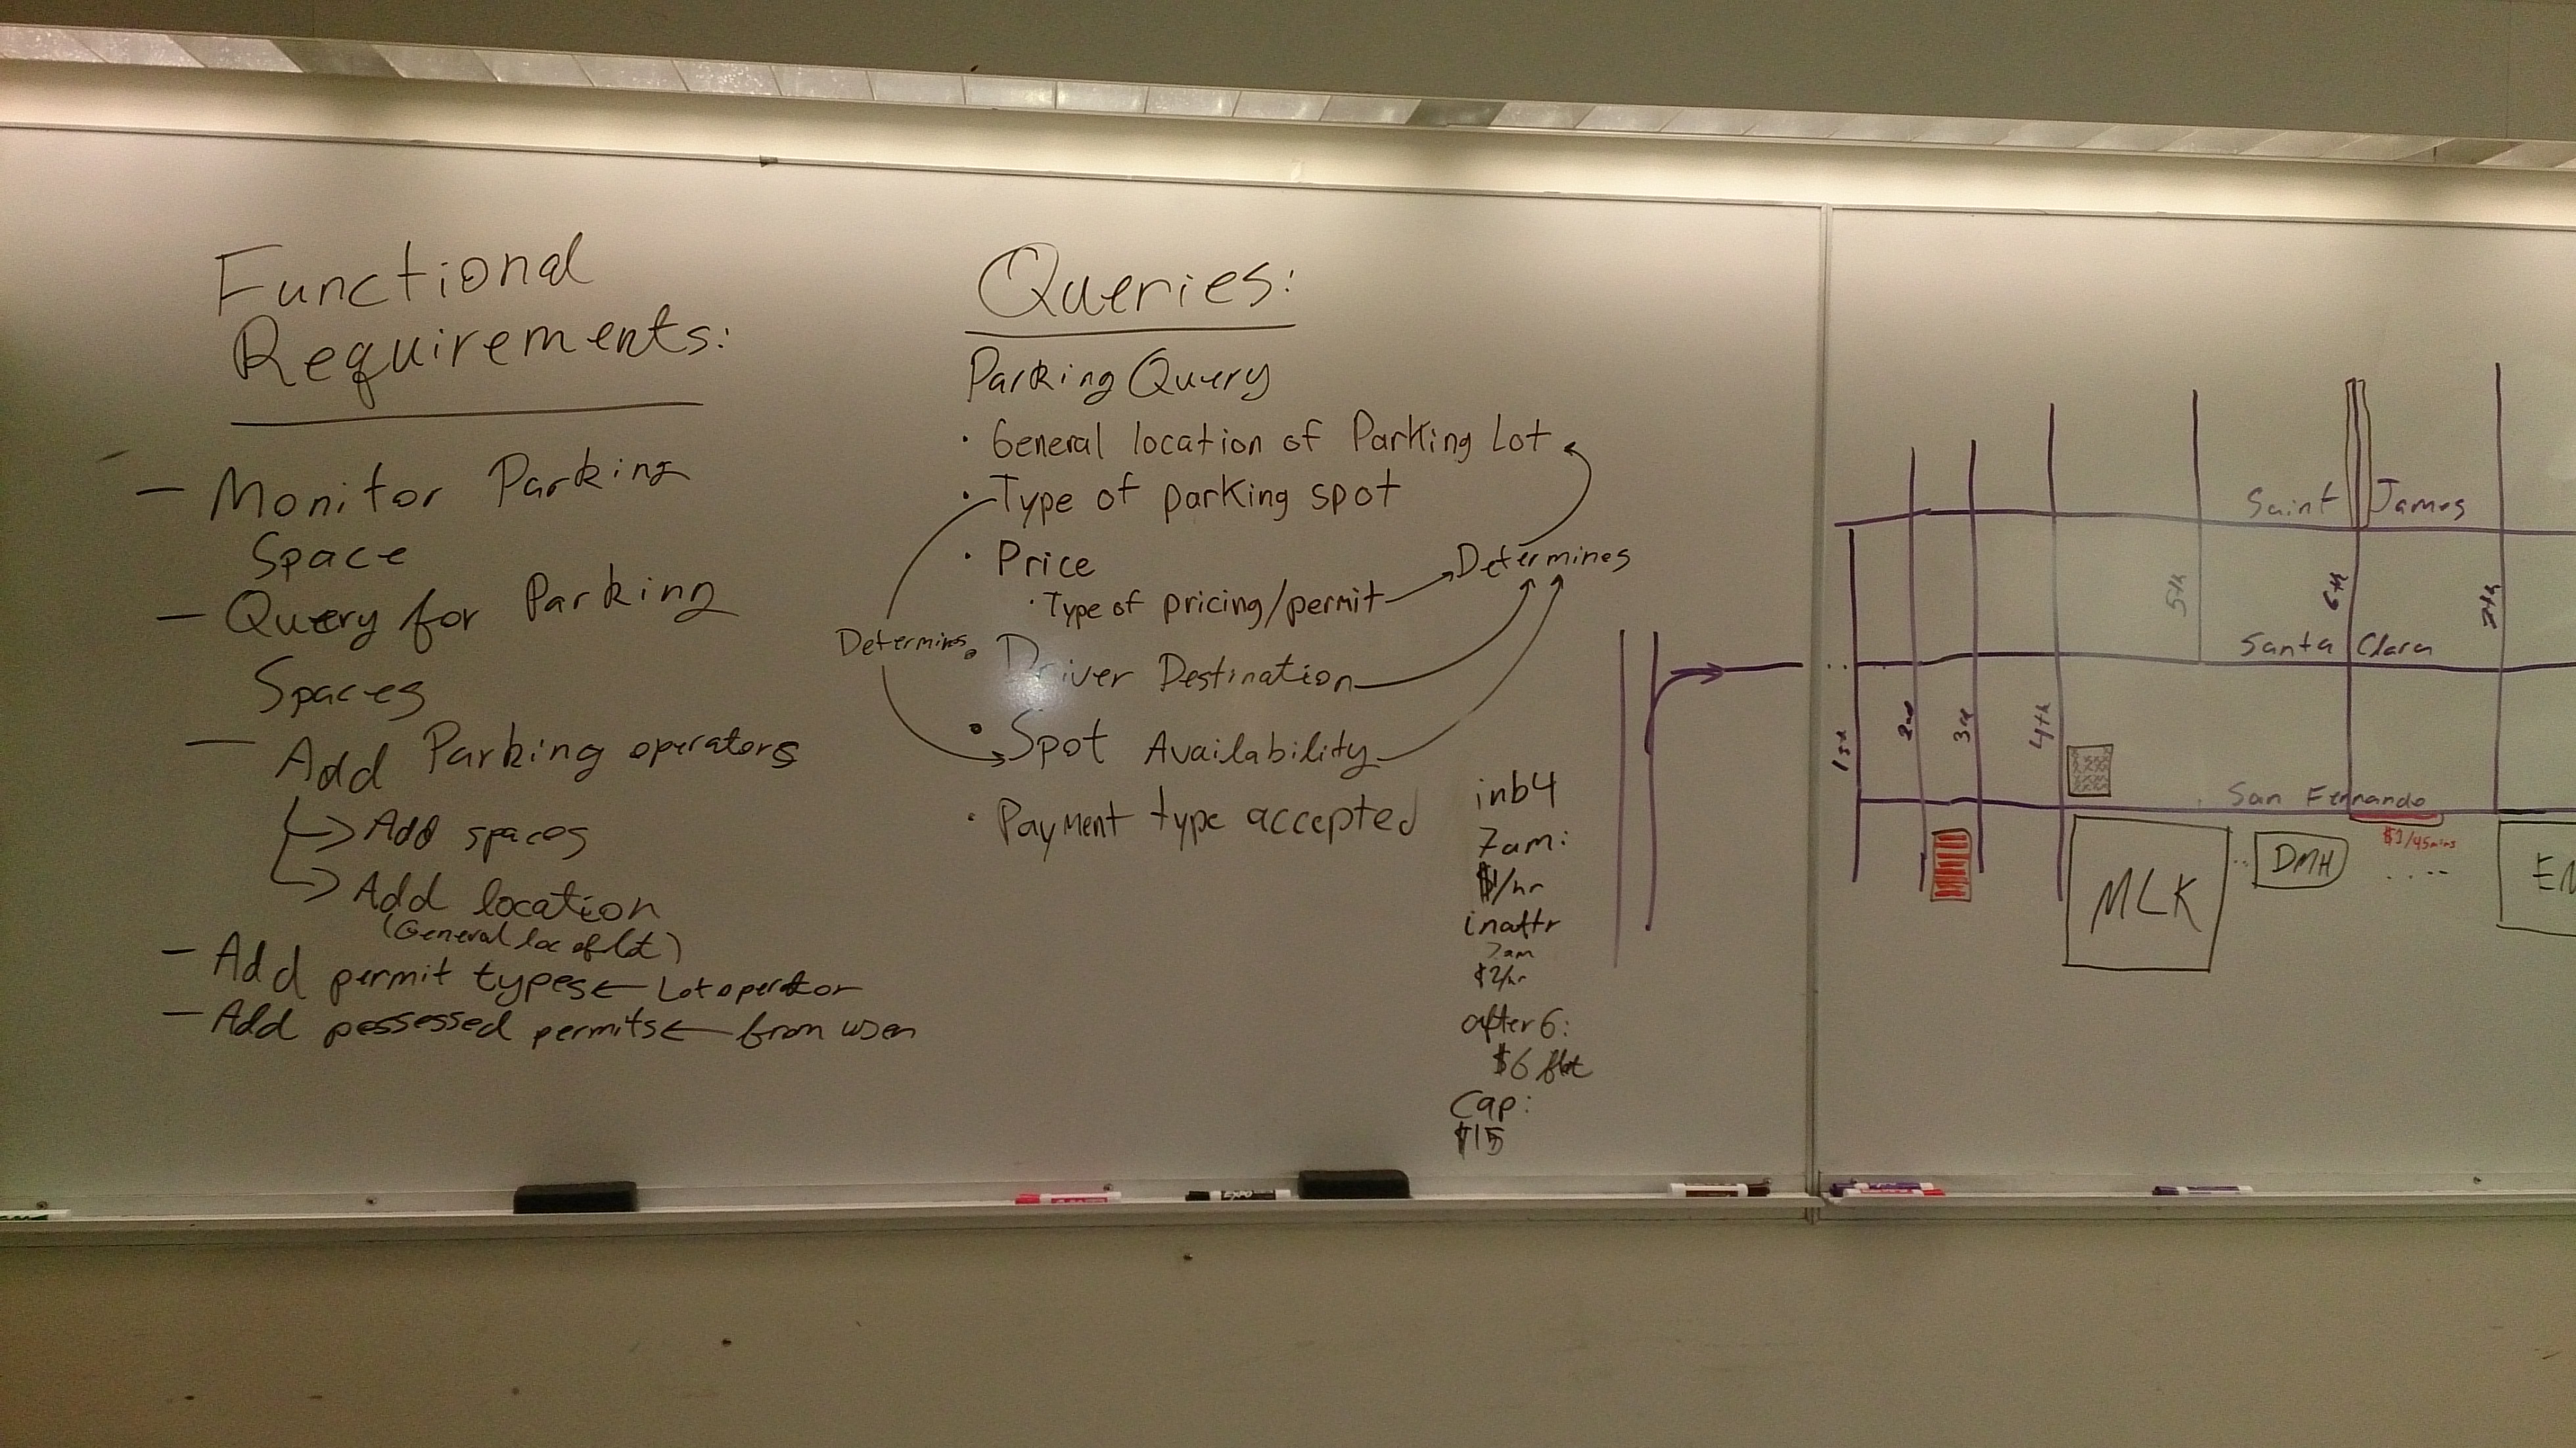 Functional
Requirements:
— Monitor Parking
Space
— Query for Parking
Spaces
— Add Parking operators
→ Add spaces
→ Add location
(General loc of lot)
— Add permit types ← Lot operator
— Add possessed permits ← from user
Queries:
Parking Query
· General location of Parking Lot
· Type of parking spot
· Price
· Type of pricing/permit → Determines
Determines
· Driver Destination
· Spot Availability
· Payment type accepted
inb4
7am:
$1/hr
inaftr
7am
$2/hr
after 6:
$6 flat
Cap:
$15
Saint James
5th
6th
7th
Santa Clara
1st
2nd
3rd
4th
San Fernando
$1/45mins
MLK
DMH
EN